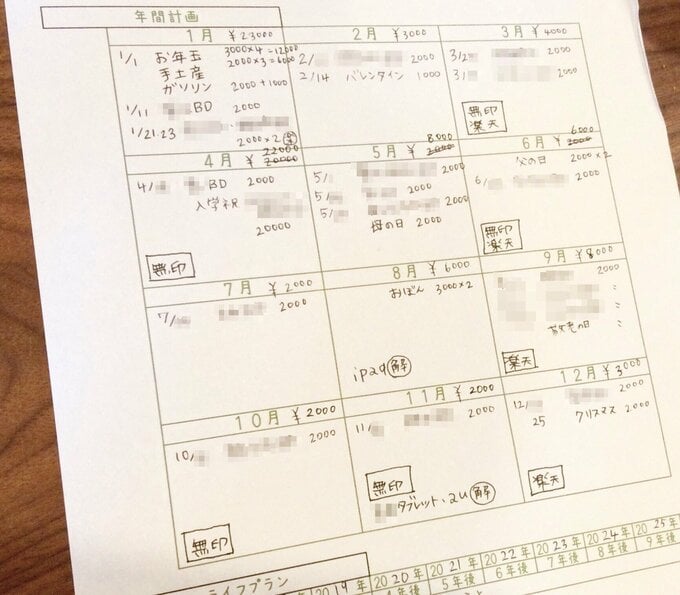 年間計画
1月 ¥23000
1/1 お年玉 3000×4=12000
2000×3=6000
手土産
ガソリン 2000+1000
1/11 BD 2000
1/21.23
2000×2
2月 ¥3000
2/ 2000
2/14 バレンタイン 1000
3月 ¥4000
3/2 2000
3/ 2000
無印
楽天
22000
4月 ¥20000
4/ BD 2000
入学祝
20000
無印
8000
5月 ¥2000
5/ 2000
5/ 2000
5/ 2000
母の日 2000
6000
6月 ¥2000
父の日 2000×2
6/ 2000
無印
楽天
7月 ¥2000
7/ 2000
8月 ¥6000
おぼん 3000×2
ipad 解
9月 ¥8000
2000
〃
〃
敬老の日 〃
楽天
10月 ¥2000
10/ 2000
無印
11月 ¥2000
11/ 2000
無印
タブレット・2u 解
12月 ¥3000
12/ 2000
25 クリスマス 2000
楽天
ライフプラン
2019年 2020年 2021年 2022年 2023年 2024年 2025年
5年後 6年後 7年後 8年後 9年後